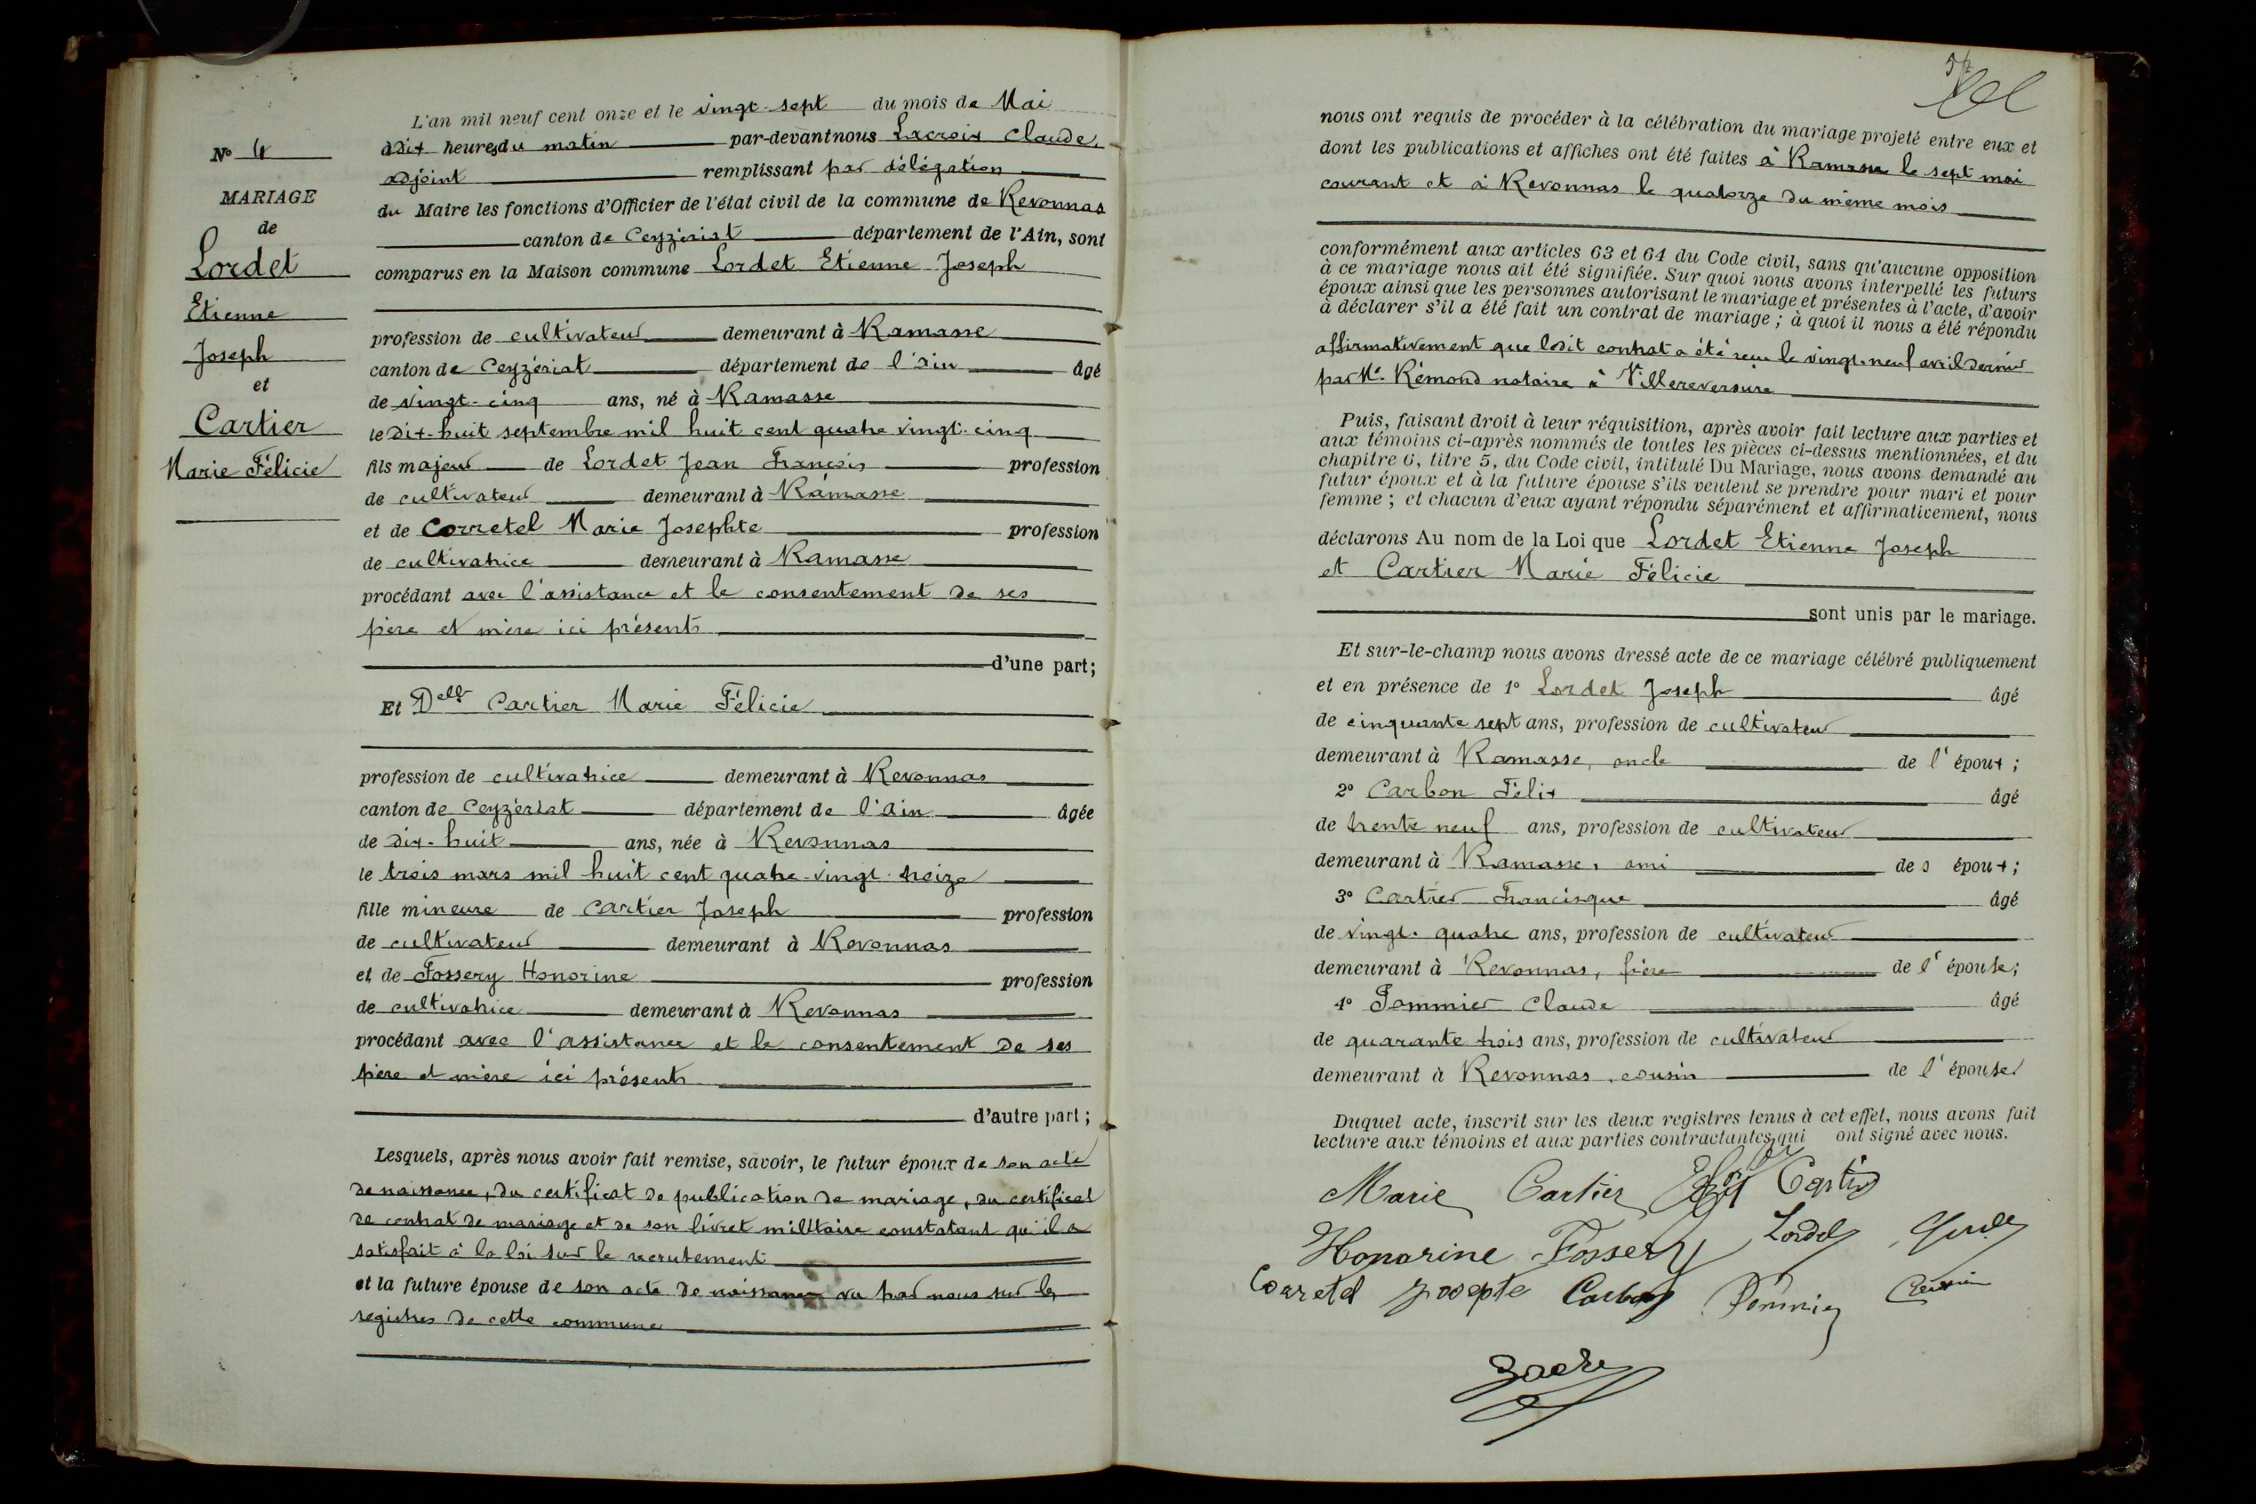 N° 4
MARIAGE
de
Lordet
Etienne
Joseph
et
Cartier
Marie Félicie
L'an mil neuf cent onze et le vingt-sept du mois de Mai
à dix heures du matin par-devant nous Lacroix Claude,
adjoint remplissant par délégation
du Maire les fonctions d'Officier de l'état civil de la commune de Revonnas
canton de Ceyzériat département de l'Ain, sont
comparus en la Maison commune Lordet Etienne Joseph
profession de cultivateur demeurant à Ramasse
canton de Ceyzériat département de l'Ain âgé
de vingt-cinq ans, né à Ramasse
le dix-huit septembre mil huit cent quatre vingt-cinq
fils majeur de Lordet Jean François profession
de cultivateur demeurant à Ramasse
et de Corretel Marie Josephte profession
de cultivatrice demeurant à Ramasse
procédant avec l'assistance et le consentement de ses
père et mère ici présents
d'une part;
Et Delle Cartier Marie Félicie
profession de cultivatrice demeurant à Revonnas
canton de Ceyzériat département de l'Ain âgée
de dix-huit ans, née à Revonnas
le trois mars mil huit cent quatre-vingt-treize
fille mineure de Cartier Joseph profession
de cultivateur demeurant à Revonnas
et de Fossery Honorine profession
de cultivatrice demeurant à Revonnas
procédant avec l'assistance et le consentement de ses
père et mère ici présents
d'autre part;
Lesquels, après nous avoir fait remise, savoir, le futur époux de son acte
de naissance, du certificat de publication de mariage, du certificat
de contrat de mariage et de son livret militaire constatant qu'il a
satisfait à la loi sur le recrutement
et la future épouse de son acte de naissance vu par nous sur les
registres de cette commune
nous ont requis de procéder à la célébration du mariage projeté entre eux et
dont les publications et affiches ont été faites à Ramasse le sept mai
courant et à Revonnas le quatorze du même mois
conformément aux articles 63 et 64 du Code civil, sans qu'aucune opposition
à ce mariage nous ait été signifiée. Sur quoi nous avons interpellé les futurs
époux ainsi que les personnes autorisant le mariage et présentes à l'acte, d'avoir
à déclarer s'il a été fait un contrat de mariage; à quoi il nous a été répondu
affirmativement que ledit contrat a été reçu le vingt-neuf avril dernier
par Me Rémond notaire à Villereversure
Puis, faisant droit à leur réquisition, après avoir fait lecture aux parties et
aux témoins ci-après nommés de toutes les pièces ci-dessus mentionnées, et du
chapitre 6, titre 5, du Code civil, intitulé Du Mariage, nous avons demandé au
futur époux et à la future épouse s'ils veulent se prendre pour mari et pour
femme; et chacun d'eux ayant répondu séparément et affirmativement, nous
déclarons Au nom de la Loi que Lordet Etienne Joseph
et Cartier Marie Félicie
sont unis par le mariage.
Et sur-le-champ nous avons dressé acte de ce mariage célébré publiquement
et en présence de 1° Lordet Joseph âgé
de cinquante sept ans, profession de cultivateur
demeurant à Ramasse, oncle de l'époux;
2° Carbon Félix âgé
de trente neuf ans, profession de cultivateur
demeurant à Ramasse, ami des époux;
3° Cartier Francisque âgé
de vingt-quatre ans, profession de cultivateur
demeurant à Revonnas, frère de l'épouse;
4° Pommier Claude âgé
de quarante trois ans, profession de cultivateur
demeurant à Revonnas, cousin de l'épouse
Duquel acte, inscrit sur les deux registres tenus à cet effet, nous avons fait
lecture aux témoins et aux parties contractantes qui ont signé avec nous.
Marie Cartier Cartier
Honorine Fossery Lordet
Corretel Josepte Carbon Pommier